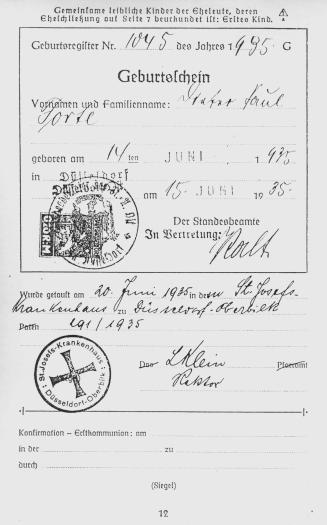 Gemeinsame leibliche Kinder der Eheleute, deren
Eheschließung auf Seite 7 beurkundet ist: Erstes Kind.
Geburtsregister Nr. 1045 des Jahres 1935 G
Geburtsschein
Vornamen und Familienname: Dieter Paul
geboren am 14ten JUNI 1935
in Düsseldorf
am 15. JUNI 1935.
Der Standesbeamte
In Vertretung:
Wurde getauft am 20. Juni 1935 in der St. Josefs-
Krankenhaus zu Düsseldorf-Oberbilk
191/1935
St. Josefs-Krankenhaus
Düsseldorf-Oberbilk
Das Pfarramt
L Klein
Rektor
Konfirmation – Erstkommunion: am
in der zu
durch
(Siegel)
12